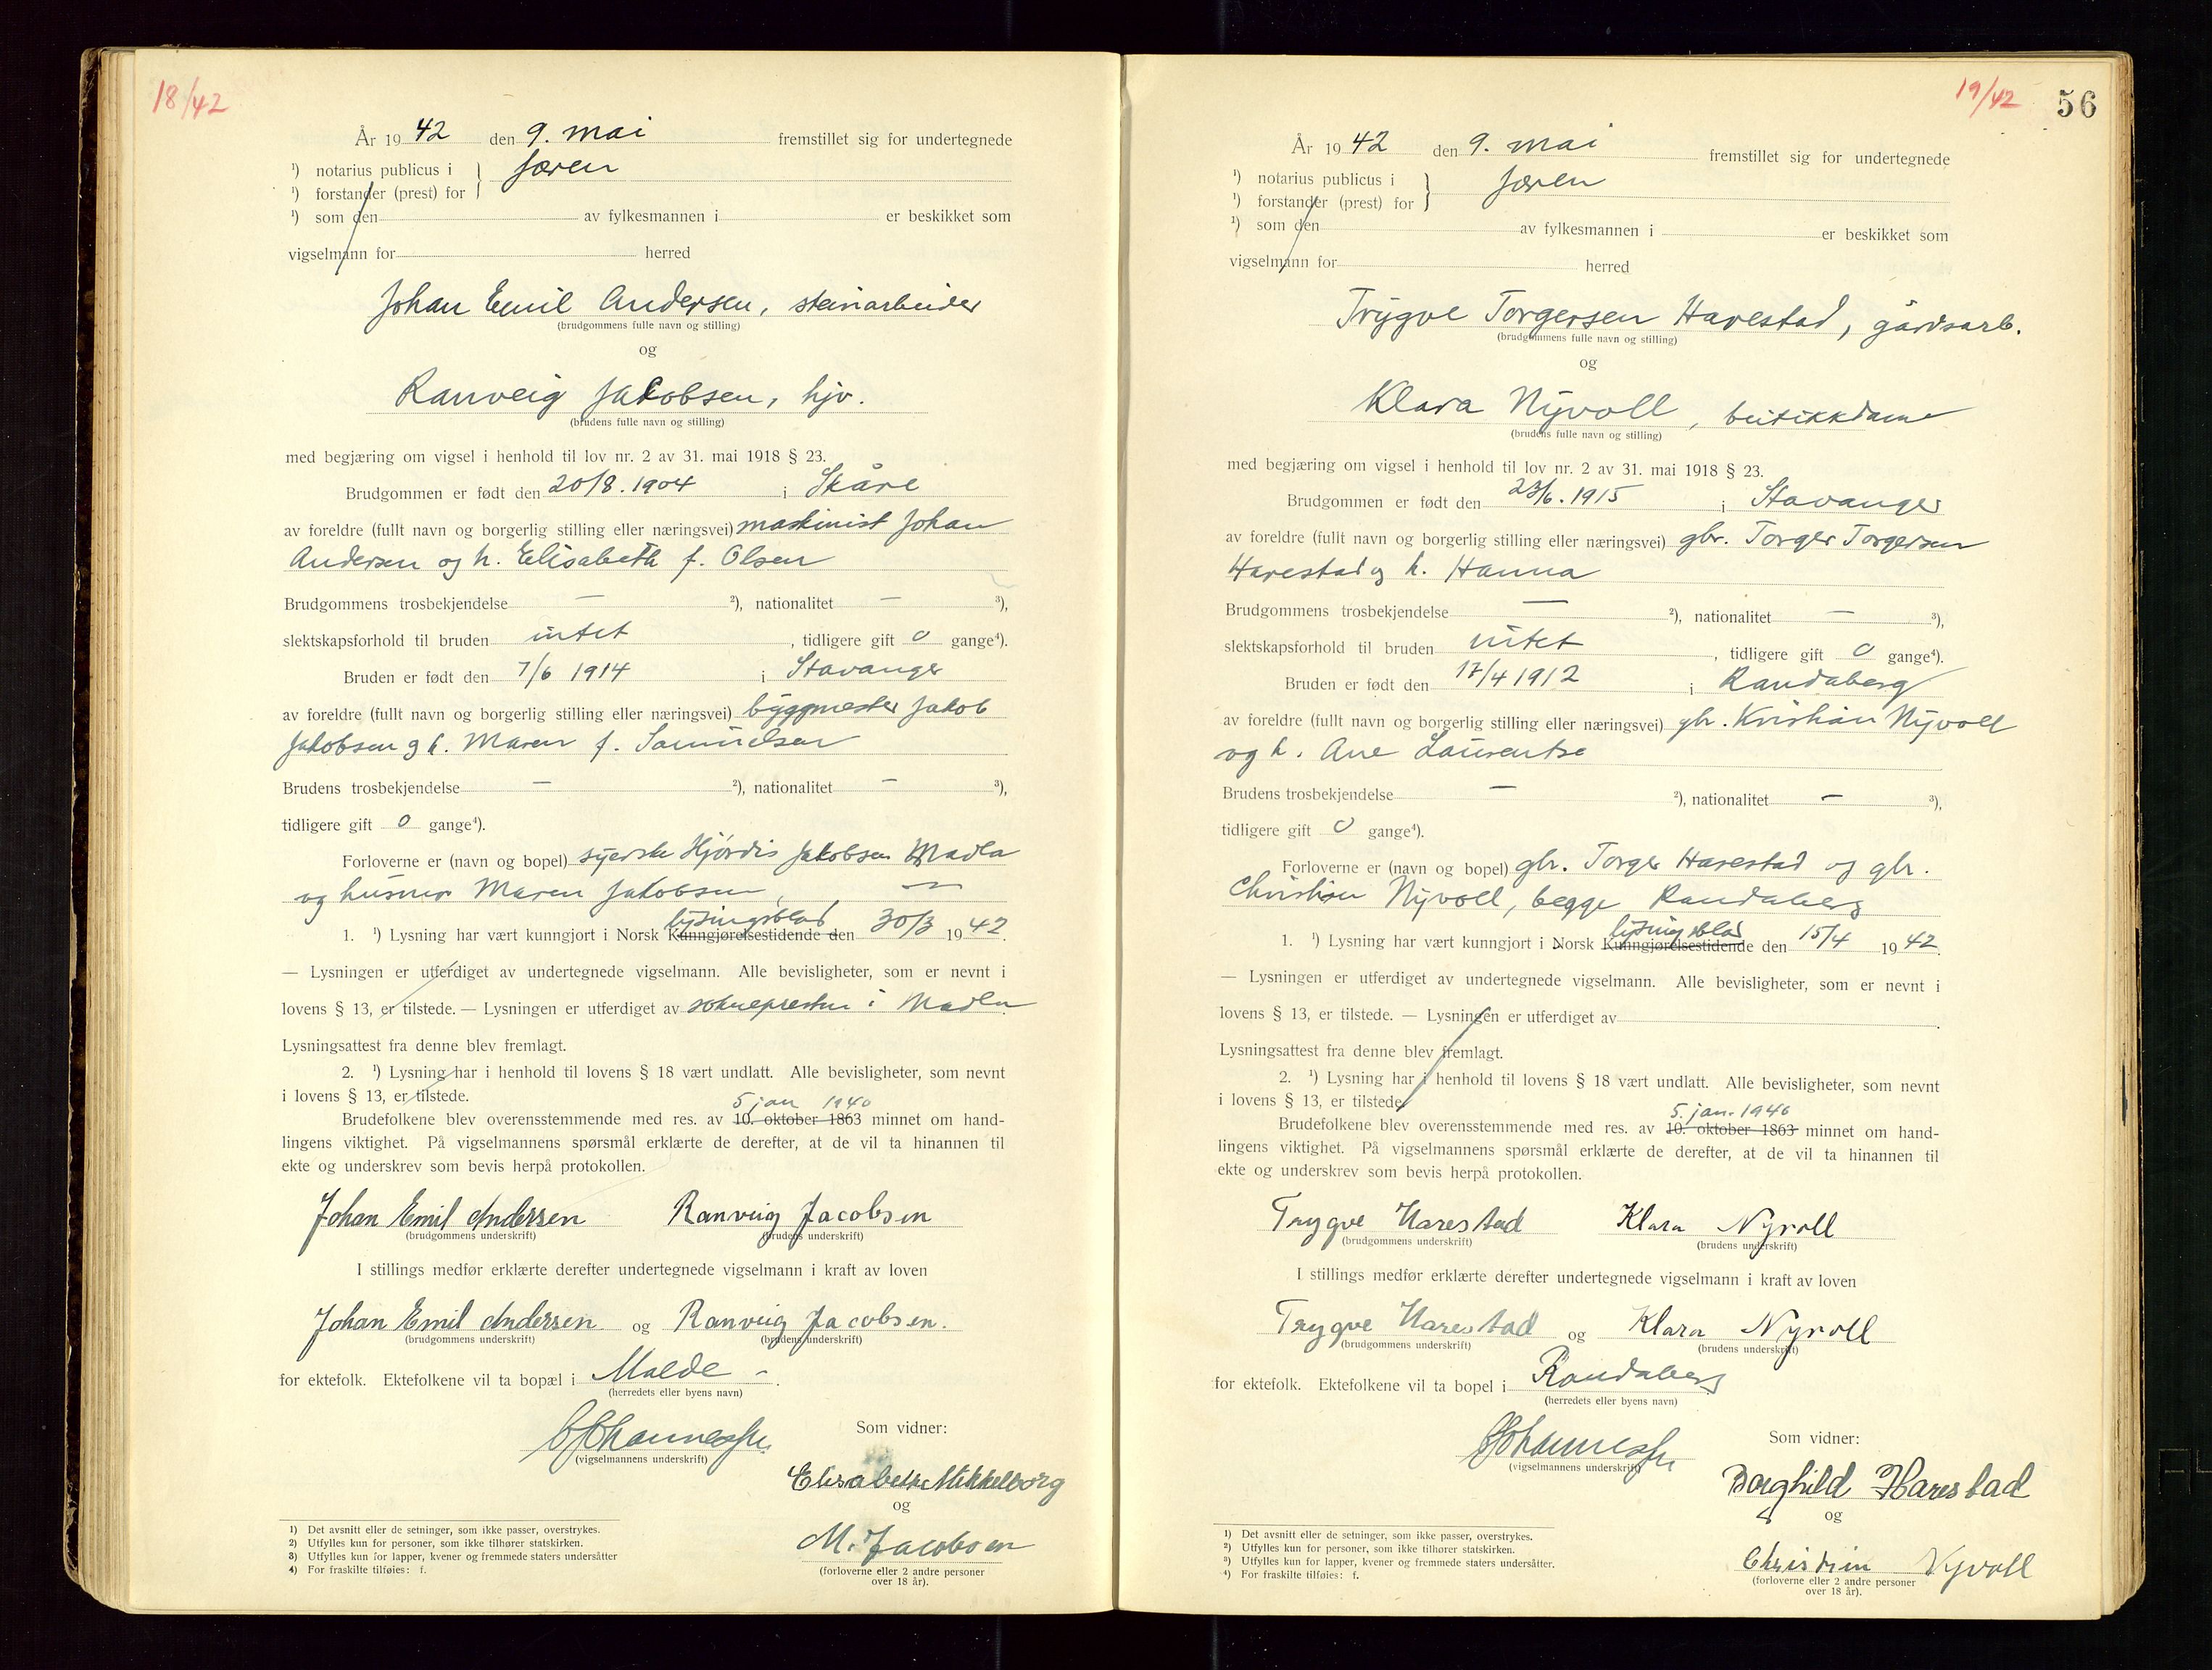 18/42
År 19 42 den 9. mai fremstillet sig for undertegnede
¹) notarius publicus i } Jæren
¹) forstander (prest) for
¹) som den av fylkesmannen i er beskikket som
vigselmann for herred
Johan Emil Andersen, steinarbeider
(brudgommens fulle navn og stilling)
og
Ranveig Jakobsen, hjv.
(brudens fulle navn og stilling)
med begjæring om vigsel i henhold til lov nr. 2 av 31. mai 1918 § 23.
Brudgommen er født den 20/8. 1904 i Skåre
av foreldre (fullt navn og borgerlig stilling eller næringsvei) maskinist Johan
Andersen og h. Elisabeth f. Olsen
Brudgommens trosbekjendelse — ²), nationalitet — ³),
slektskapsforhold til bruden intet, tidligere gift 0 gange⁴).
Bruden er født den 7/6 1914 i Stavanger
av foreldre (fullt navn og borgerlig stilling eller næringsvei) byggmester Jakob
Jakobsen og h. Maren f. Samuelsen
Brudens trosbekjendelse — ²), nationalitet — ³),
tidligere gift 0 gange⁴).
Forloverne er (navn og bopel) syerske Hjördis Jakobsen Madla
og husmor Maren Jakobsen, —
lysingsblad
1. ¹) Lysning har vært kunngjort i Norsk Kunngjørelsestidende den 30/3 19 42.
— Lysningen er utferdiget av undertegnede vigselmann. Alle bevisligheter, som er nevnt i
lovens § 13, er tilstede. — Lysningen er utferdiget av soknepresten i Madla
Lysningsattest fra denne blev fremlagt.
2. ¹) Lysning har i henhold til lovens § 18 vært undlatt. Alle bevisligheter, som nevnt
i lovens § 13, er tilstede.
5 jan 1940
Brudefolkene blev overensstemmende med res. av 10. oktober 1863 minnet om hand-
lingens viktighet. På vigselmannens spørsmål erklærte de derefter, at de vil ta hinannen til
ekte og underskrev som bevis herpå protokollen.
Johan Emil Andersen Ranveig Jacobsen
(brudgommens underskrift) (brudens underskrift)
I stillings medfør erklærte derefter undertegnede vigselmann i kraft av loven
Johan Emil Andersen og Ranveig Jacobsen.
(brudgommens underskrift) (brudens underskrift)
for ektefolk. Ektefolkene vil ta bopæl i Malde -.
(herredets eller byens navn)
Som vidner:
(vigselmannens underskrift)
Elisabeth Mikkelborg
og
M. Jacobsen
(forloverne eller 2 andre personer
over 18 år).
1) Det avsnitt eller de setninger, som ikke passer, overstrykes.
2) Utfylles kun for personer, som ikke tilhører statskirken.
3) Utfylles kun for lapper, kvener og fremmede staters undersåtter
4) For fraskilte tilføies: f.
19/42 56
År 19 42 den 9. mai fremstillet sig for undertegnede
¹) notarius publicus i } Jæren
¹) forstander (prest) for
¹) som den av fylkesmannen i er beskikket som
vigselmann for herred
Trygve Torgersen Harestad, gårdsarb.
(brudgommens fulle navn og stilling)
og
Klara Nyvoll, butikkdame
(brudens fulle navn og stilling)
med begjæring om vigsel i henhold til lov nr. 2 av 31. mai 1918 § 23.
Brudgommen er født den 23/6. 1915 i Stavanger
av foreldre (fullt navn og borgerlig stilling eller næringsvei) gbr. Torger Torgersen
Harestad og h. Hanna
Brudgommens trosbekjendelse — ²), nationalitet — ³),
slektskapsforhold til bruden intet, tidligere gift 0 gange⁴).
Bruden er født den 17/4 1912 i Randaberg
av foreldre (fullt navn og borgerlig stilling eller næringsvei) gbr. Kristian Nyvoll
og h. Ane Laurentse
Brudens trosbekjendelse — ²), nationalitet — ³),
tidligere gift 0 gange⁴).
Forloverne er (navn og bopel) gbr. Torger Harestad og gbr.
Christian Nyvoll, begge Randaberg
lysingsblad
1. ¹) Lysning har vært kunngjort i Norsk Kunngjørelsestidende den 15/4 19 42.
— Lysningen er utferdiget av undertegnede vigselmann. Alle bevisligheter, som er nevnt i
lovens § 13, er tilstede. — Lysningen er utferdiget av
Lysningsattest fra denne blev fremlagt.
2. ¹) Lysning har i henhold til lovens § 18 vært undlatt. Alle bevisligheter, som nevnt
i lovens § 13, er tilstede.
5. jan. 1940
Brudefolkene blev overensstemmende med res. av 10. oktober 1863 minnet om hand-
lingens viktighet. På vigselmannens spørsmål erklærte de derefter, at de vil ta hinannen til
ekte og underskrev som bevis herpå protokollen.
Trygve Harestad Klara Nyvoll
(brudgommens underskrift) (brudens underskrift)
I stillings medfør erklærte derefter undertegnede vigselmann i kraft av loven
Trygve Harestad og Klara Nyvoll
(brudgommens underskrift) (brudens underskrift)
for ektefolk. Ektefolkene vil ta bopel i Randaberg
(herredets eller byens navn)
Som vidner:
(vigselmannens underskrift)
Borghild Harestad
og
Christian Nyvoll
(forloverne eller 2 andre personer
over 18 år).
1) Det avsnitt eller de setninger, som ikke passer, overstrykes.
2) Utfylles kun for personer, som ikke tilhører statskirken.
3) Utfylles kun for lapper, kvener og fremmede staters undersåtter.
4) For fraskilte tilføies: f.